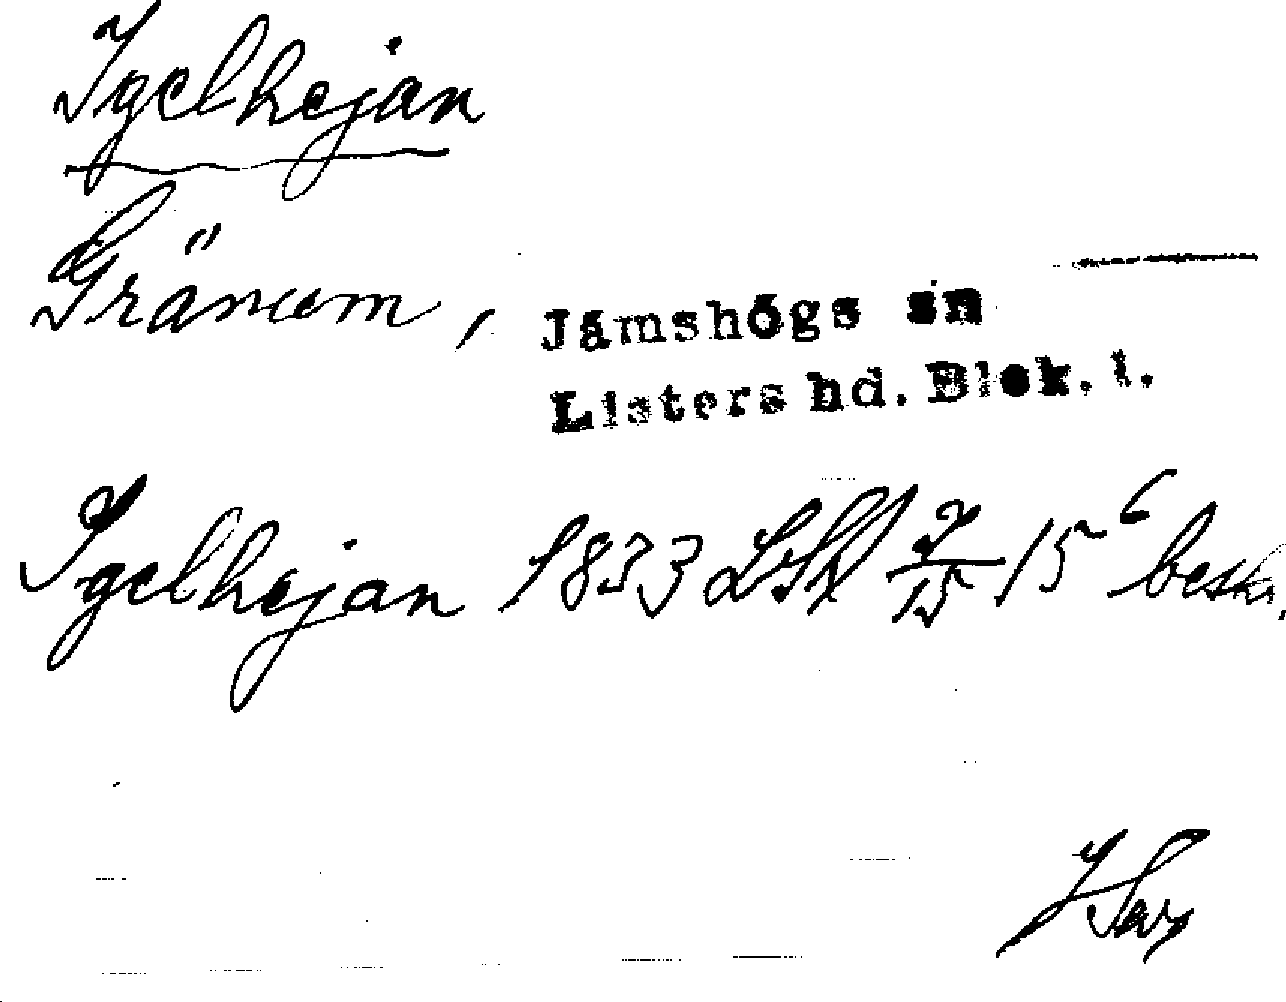 Igelhejan
Gränum, Jämshögs sn
Listers hd. Blek. l.
Igelhejan 1833 LSA 15⁶ beskr.